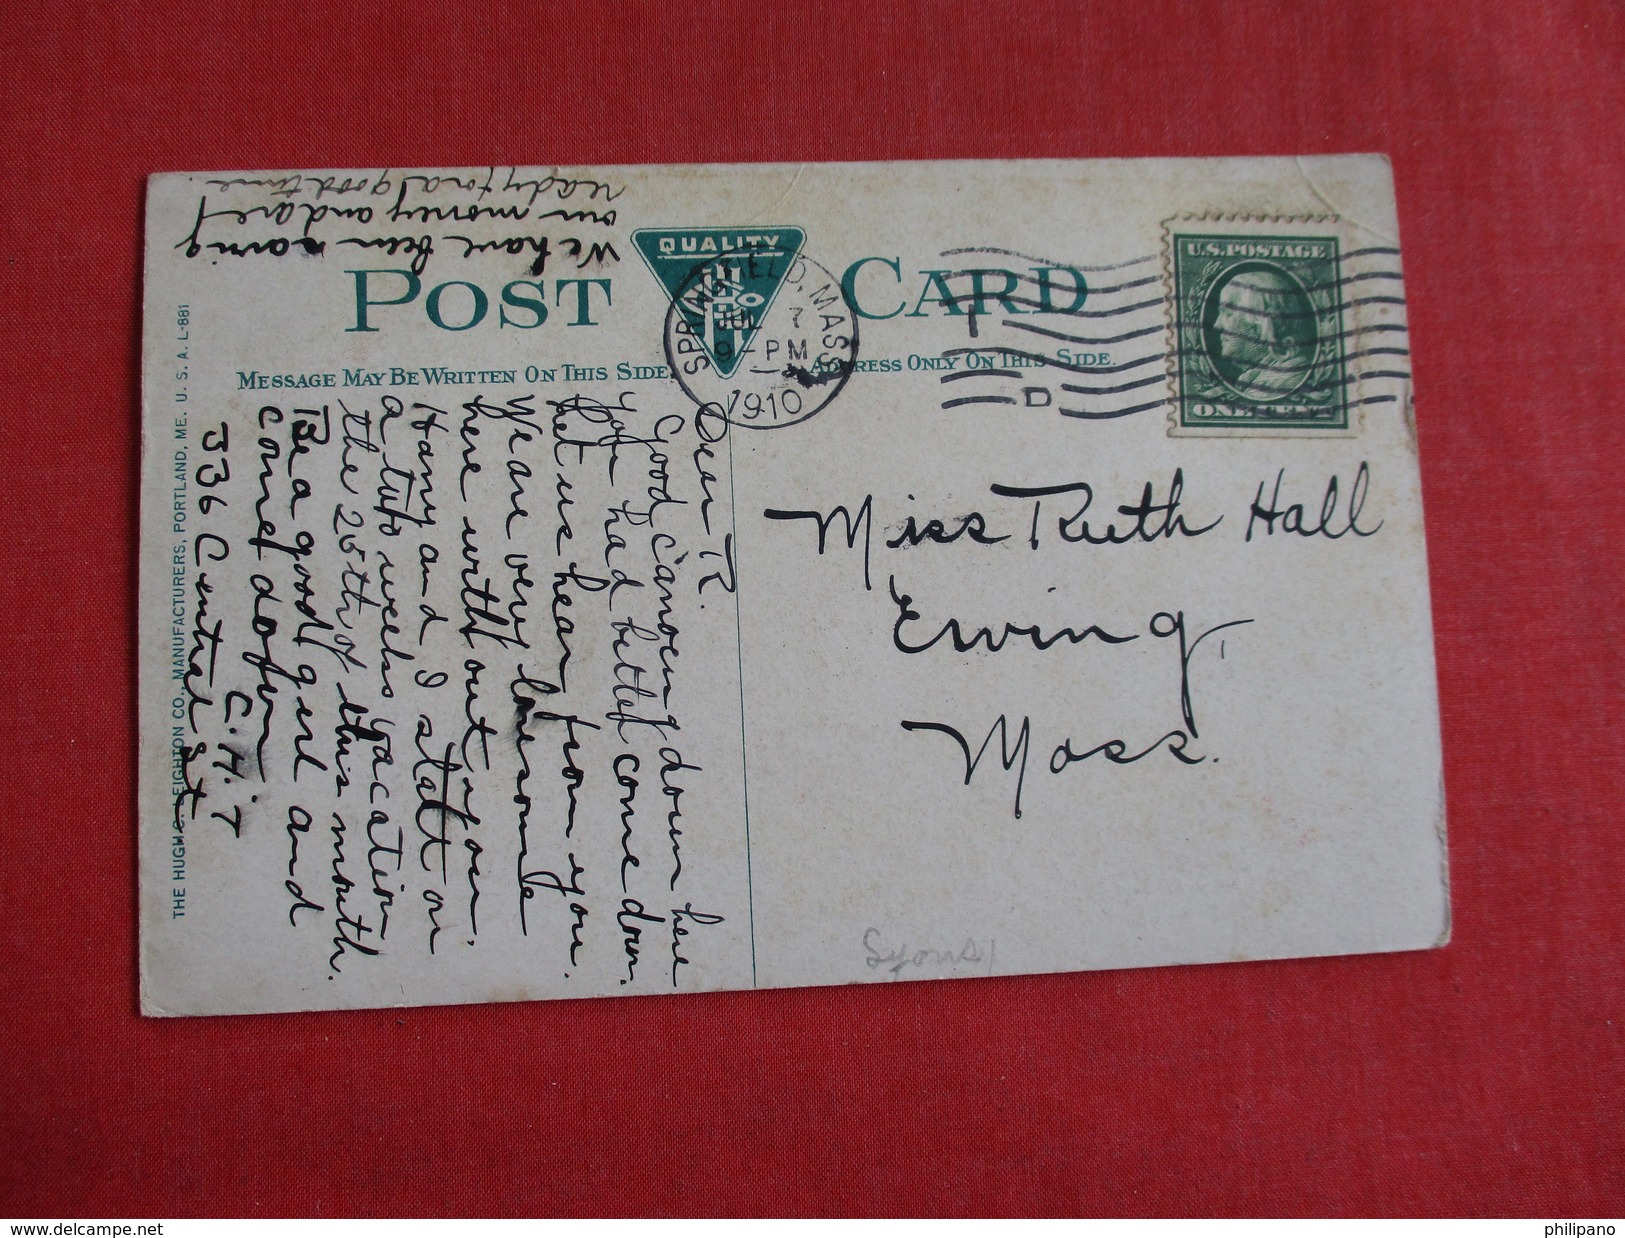 POST CARD
QUALITY
MESSAGE MAY BE WRITTEN ON THIS SIDE.
ADDRESS ONLY ON THIS SIDE.
SPRINGFIELD, MASS
JUL 7
9-PM
1910
D
U.S. POSTAGE
ONE CENT
Miss Ruth Hall
Erving,
Mass.
Dear R.
Good canoeing down here
you had better come down.
Let us hear from you.
We are very lonesome
here without you.
Harry and I start on
a two weeks vacation
the 25th of this month.
Be a good girl and
come down
C.H.T
336 Central St
We have been saving
our money and are
ready for a good time.
THE HUGH C. LEIGHTON CO., MANUFACTURERS, PORTLAND, ME. U. S. A. L-881
Lyons
delcampe.net
philipano